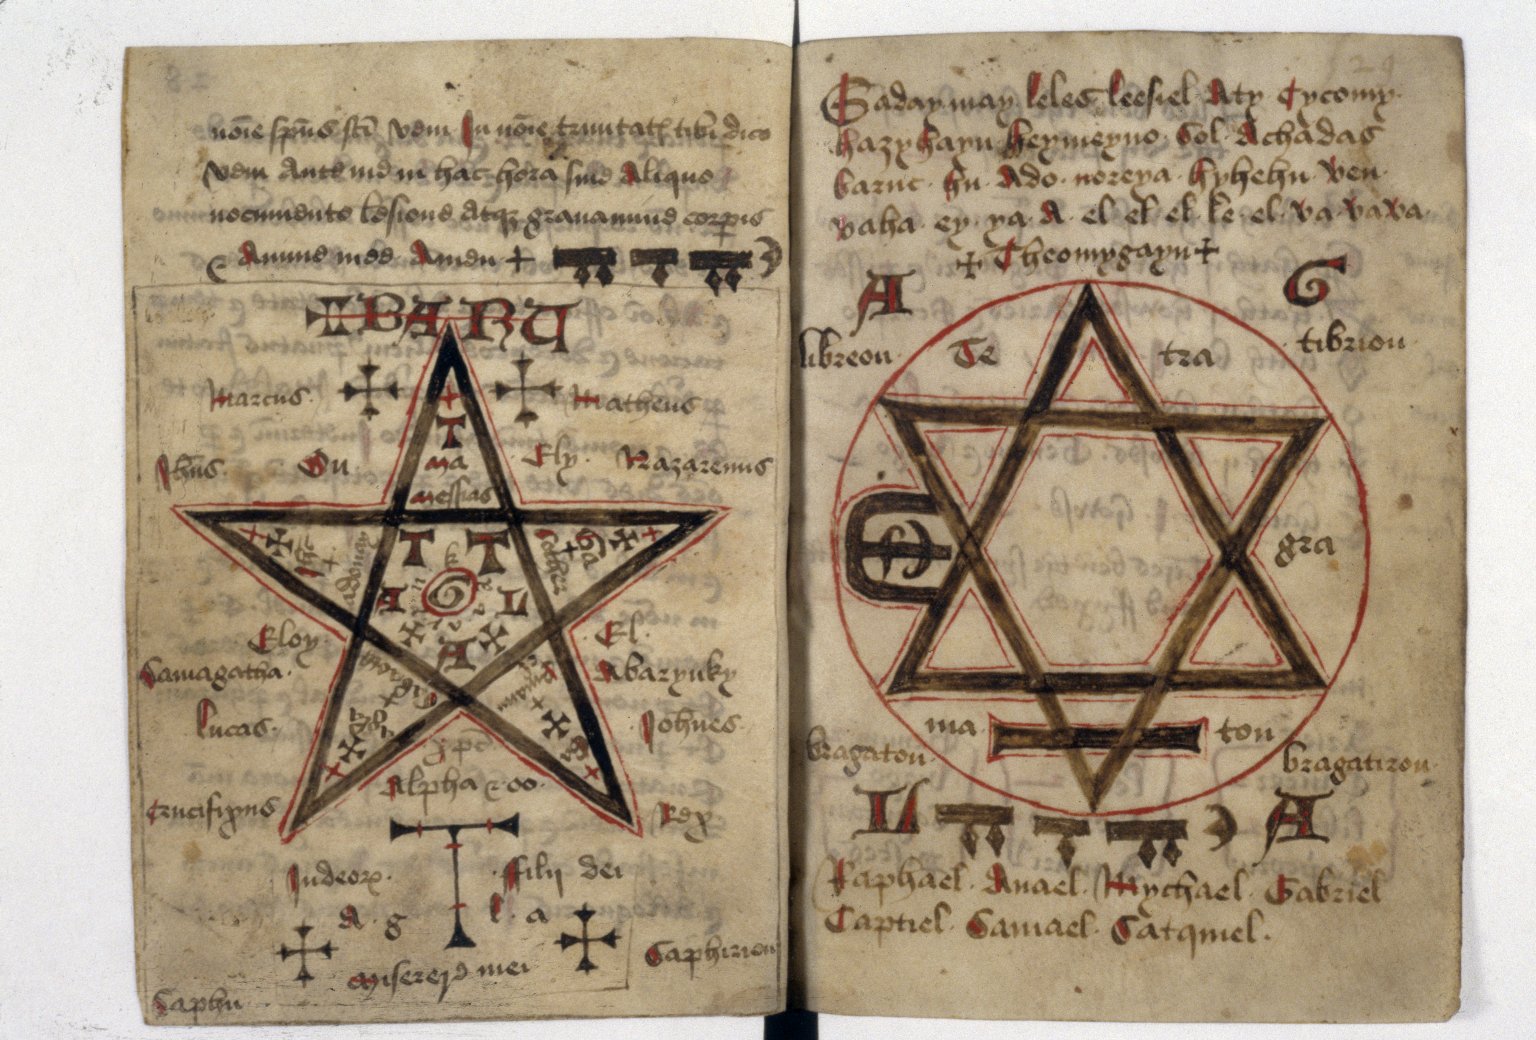 noīe spūs scī vem In noīe trinitatꝭ tibi dico
vem ante me in hac hora sine Aliquo
nocumento lesione Atqꝫ gravamine corpis
Anime mee Amen +
+BARU
Marcus. Matheus
Jhūs. On Ely. Nazarenus
T
ma
messias
T T
adonay
sother
G
A L
A
Eloy El.
Samagatha. Abarynky
Lucas. Johēs.
xpc
Alpha & oo.
Crucifixus Rex
Judeoꝝ. filij dei
A. g l. a
Miserere mei
Saphirion
Saphu
Saday may. leles leesiel Aty Cycomy.
hazyhayn heymeyno. Sol. Achadas
baruc. hu. Ado. noreya. hyhehu. Ven.
vaha. ey. ya. A. el el el. le. el. va. vava.
+Theomygayn+
A G
libreon. Te tra tibrion.
gra
ma ton
bragaton. bragatiron.
A
Raphael. Anael. Mychael. Gabriel
Captiel. Samael. Satquiel.